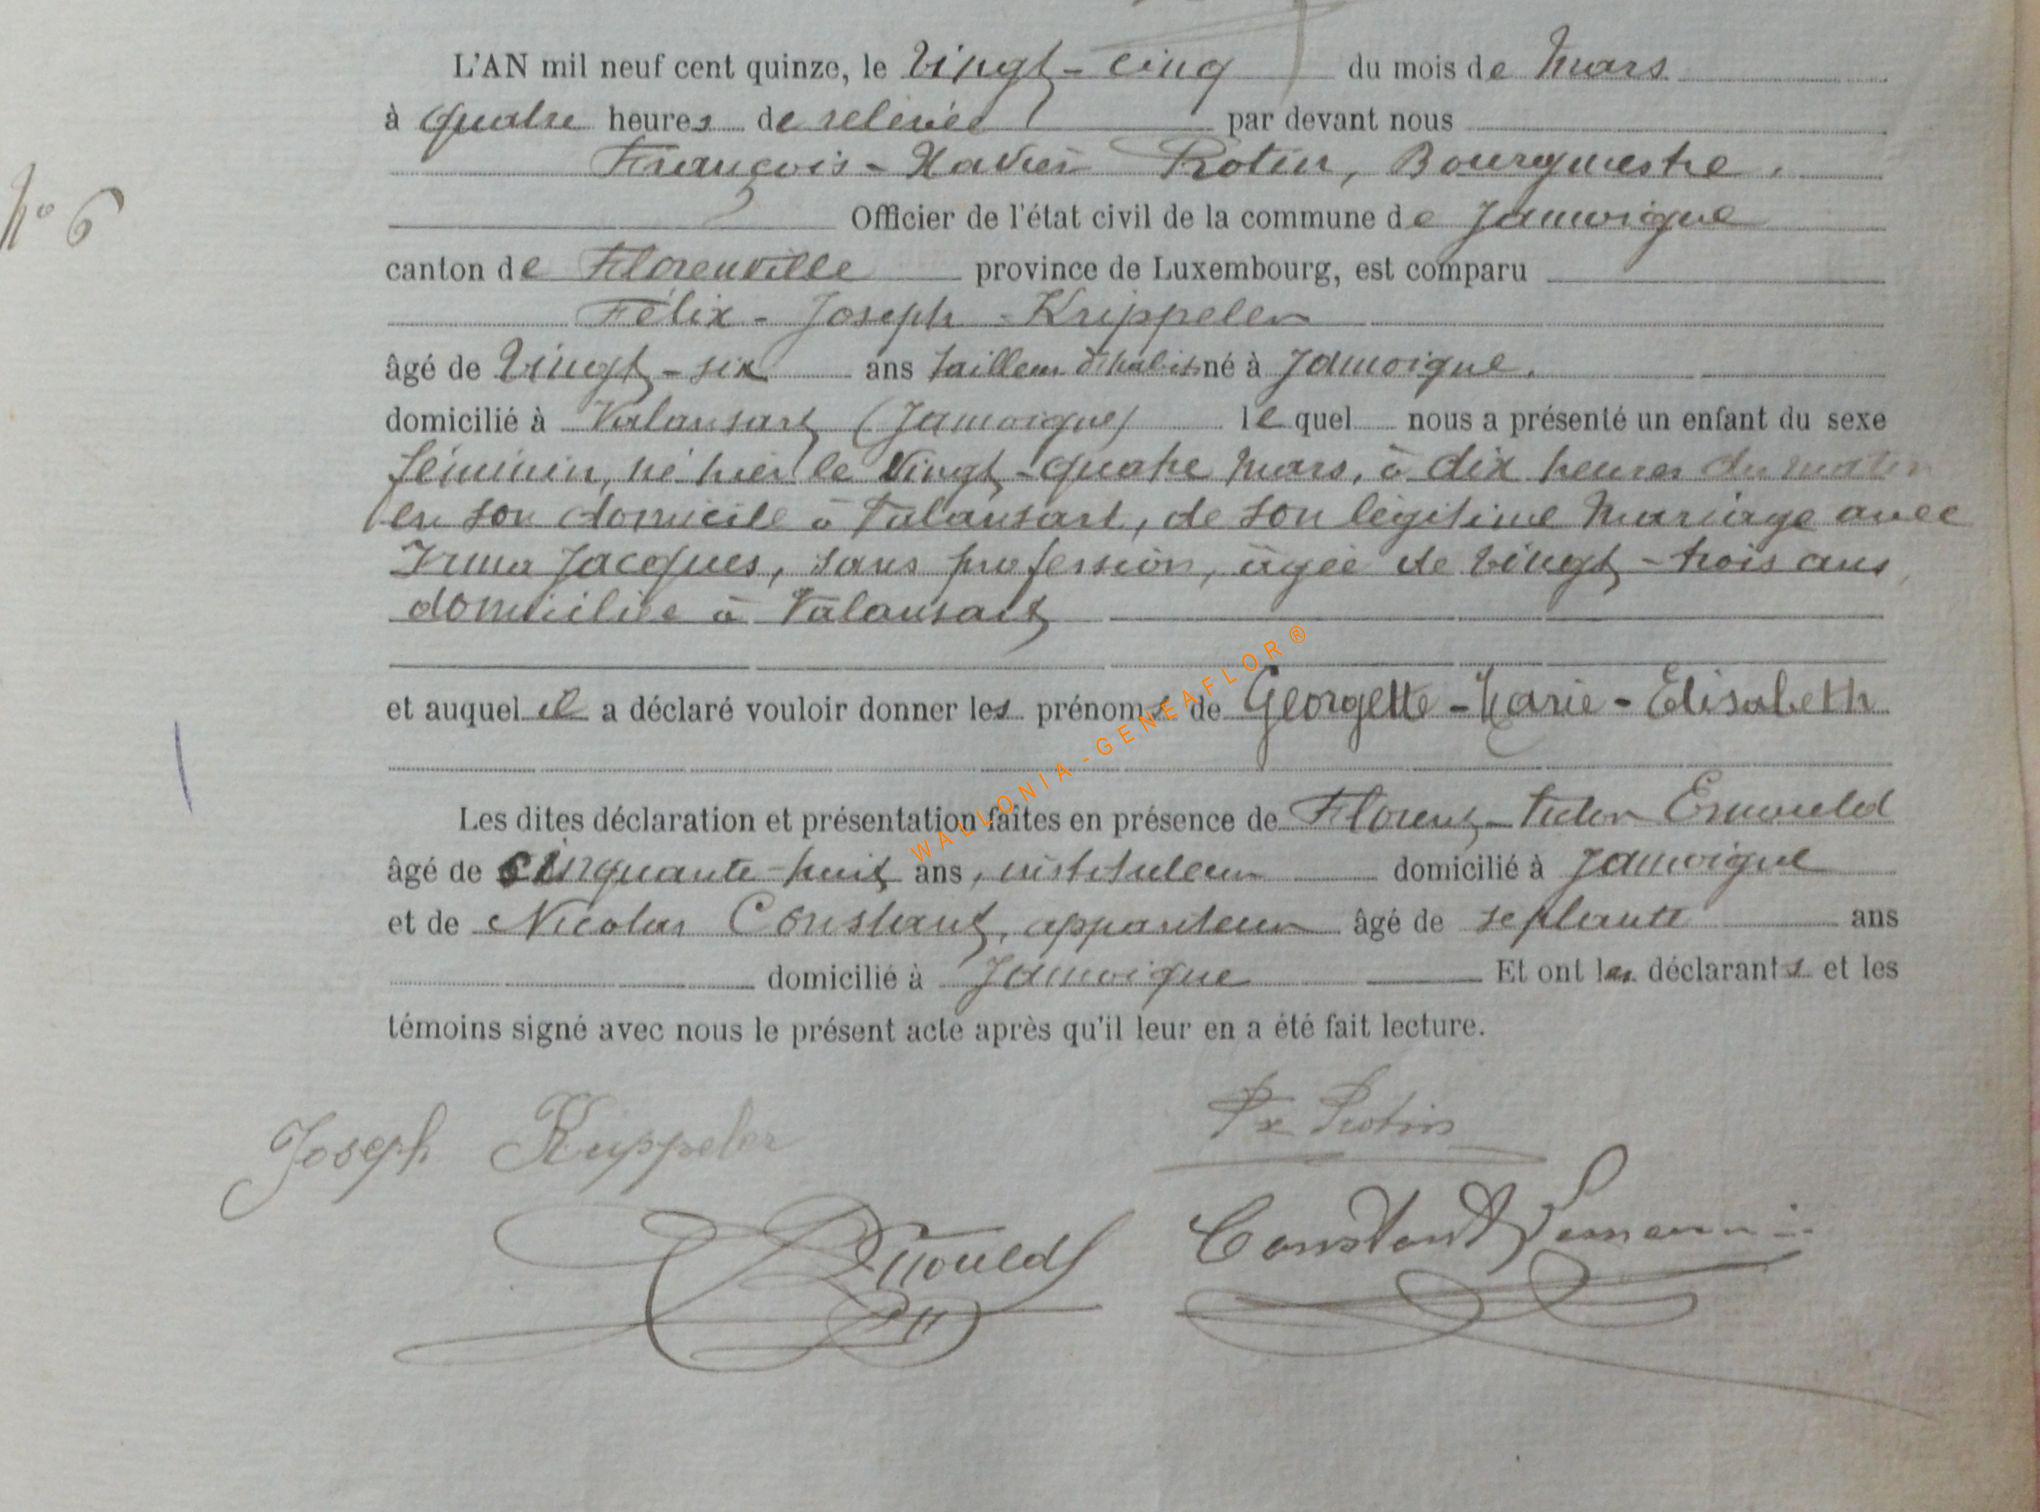 L'AN mil neuf cent quinze, le vingt-cinq du mois de Mars
à quatre heures de relevée par devant nous
François-Xavier Rotin, Bourgmestre,
N° 6
Officier de l'état civil de la commune de Jamoigne
canton de Florenville province de Luxembourg, est comparu
Félix-Joseph Krippeler
âgé de vingt-six ans tailleur d'habits né à Jamoigne.
domicilié à Valansart (Jamoigne) lequel nous a présenté un enfant du sexe
féminin, né hier le vingt-quatre Mars, à dix heures du matin
en son domicile à Valansart, de son légitime mariage avec
Irma Jacques, sans profession, âgée de vingt-trois ans,
domiciliée à Valansart
et auquel il a déclaré vouloir donner les prénoms de Georgette-Marie-Elisabeth
WALLONIA-GENEAFLOR®
Les dites déclaration et présentation faites en présence de Florent Enould
âgé de cinquante-huit ans, instituteur domicilié à Jamoigne
et de Nicolas Constant, appariteur âgé de septante ans
domicilié à Jamoigne Et ont les déclarants et les
témoins signé avec nous le présent acte après qu'il leur en a été fait lecture.
Joseph Krippeler
Fx Rotin
Enould
Constant